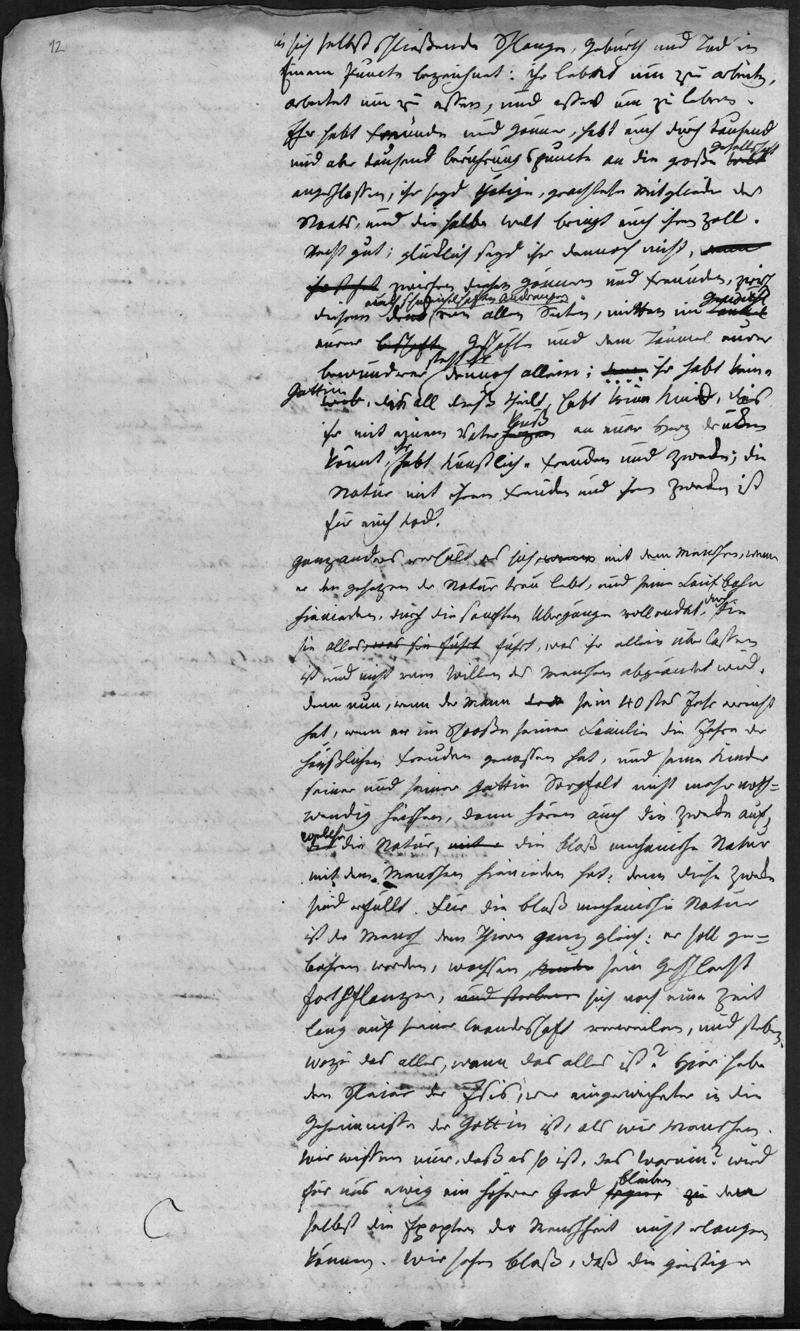 12
in sich selbst schließende Schlange, Geburth und Tod in
Einem Puncte bezeichnet: ihr lebtet um zu arbeiten,
arbeitet um zu essen, und esset um zu leben.
Ihr habt Freunde und Gönner, habt euch durch tausend
und aber tausend berührungspuncte an die große Gesellschaft
angeschlossen, ihr seyd thätige, geachtete Mitglieder des
Staats, und die halbe Welt bringt euch ihren Zoll.
Recht gut; glücklich seyd ihr dennoch nicht,
zwischen diesen Gönnern und Freunden,
diesem von allen Seiten, mitten im
eurer Geschäfte und dem Taumel eurer
bewunderer steht ihr dennoch allein; ihr habt keine
Gattin, die all dieß theilt, habt kein Kind, das
ihr mit einem Vater Kuß an euer Herz drücken
könnt, ihr habt künstliche Freuden und Zwecke; die
Natur mit ihren Freuden und ihren Zwecken ist
für euch tod.
ganz anders verhält es sich mit dem Menschen, wenn
er den gesetzen der Natur treu lebt, und seine Laufbahn
hienieden, durch die sanften Übergänge vollendet, durch die
sie alles führt, was ihr allein überlassen
ist und nicht vom Willen des Menschen abgeändert wird.
denn nun, wenn der Mann sein 40stes Jahr erreicht
hat, wenn er im Schooße seiner Familie die Jahre der
häußlichen Freuden genossen hat, und seine Kinder
seiner und seiner Gattin Sorgfalt nicht mehr noth=
wendig haben, dann hören auch die Zwecke auf,
welche die Natur, die bloß mechanische Natur
mit dem Menschen hienieden hat; denn diese Zwecke
sind erfüllt. Für die bloß mechanische Natur
ist der Mensch dem Thiere ganz gleich: er soll ge=
bohren werden, wachsen, sein Geschlecht
fortpflanzen, sich noch eine Zeit
lang auf seiner Wanderschaft verweilen, und sterben.
wozu das alles, wenn das alles ist? Hier hebe
den Schleier der Isis, wer eingeweihter in die
Geheimnisse der Göttin ist, als wir Menschen.
Wir wissen nur, daß es so ist, das Warum? wird
für uns ewig ein höherer Grad bleiben zu dem
selbst die Epopten der Menschheit nicht erlangen
können. Wir sehen bloß, daß die geistige